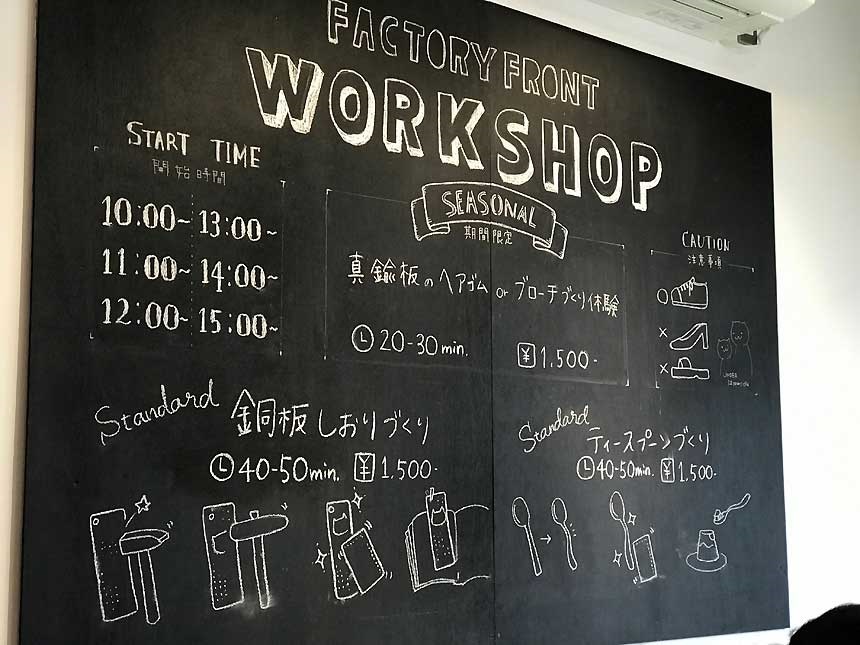 FACTORY FRONT
WORKSHOP
START TIME
開始時間
10:00~ 13:00~
11:00~ 14:00~
12:00~ 15:00~
SEASONAL
期間限定
真鍮板のヘアゴム or ブローチづくり体験
20-30min. ¥1,500-
CAUTION
注意事項
○
×
×
Standard 銅板しおりづくり
40-50min. ¥1,500-
Standard
ティースプーンづくり
40-50min. ¥1,500-